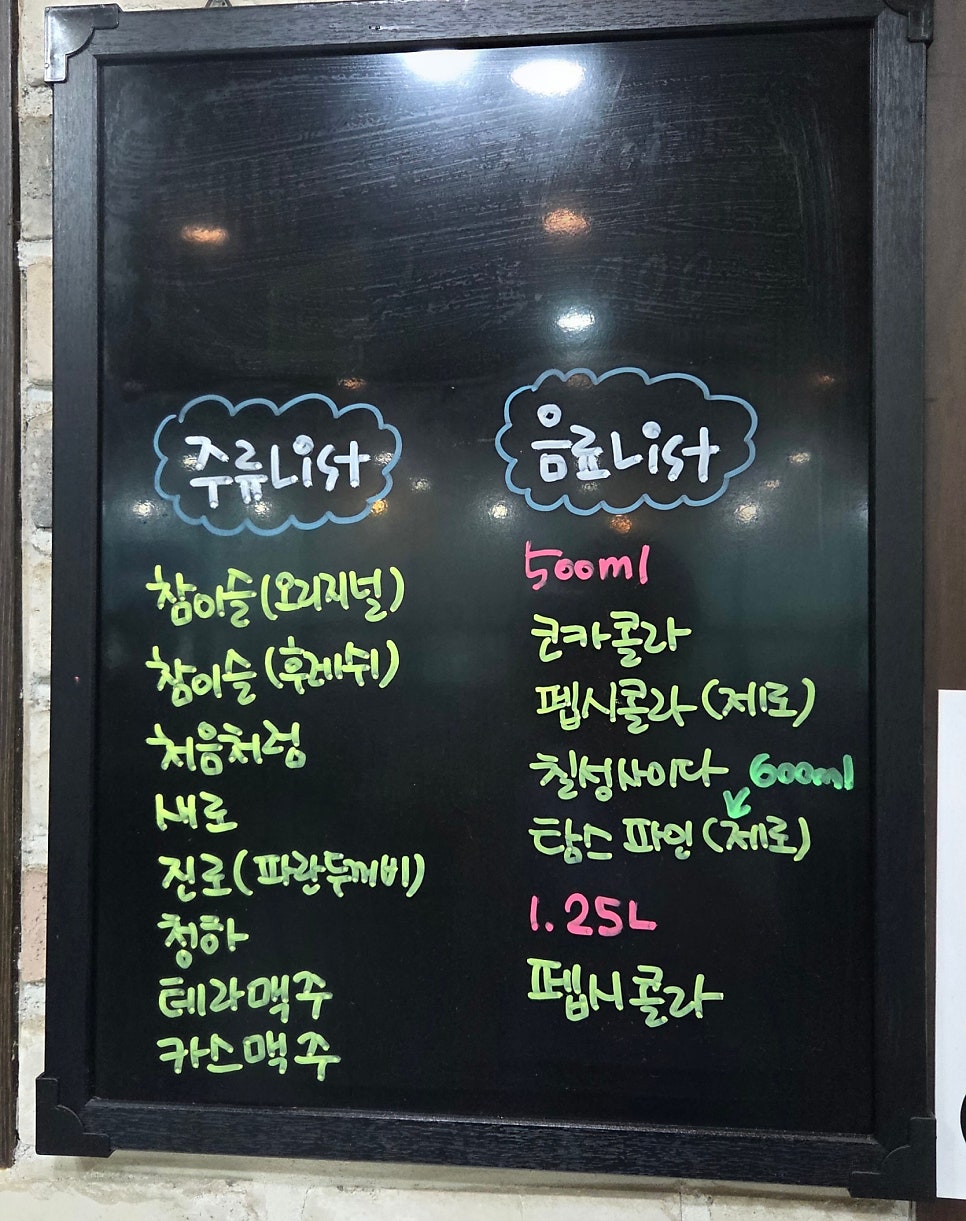 주류List
참이슬(오리지널)
참이슬(후레쉬)
처음처럼
새로
진로(파란두꺼비)
청하
테라맥주
카스맥주
음료List
500ml
코카콜라
펩시콜라(제로)
칠성사이다
600ml
탐스 파인(제로)
1.25L
펩시콜라